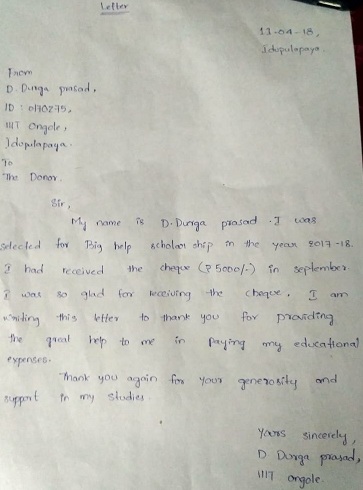 Letter
11-04-18,
Idupulapaya.
From
D. Durga prasad,
ID : O170275,
IIIT Ongole,
Idupulapaya.
To
The Donor.
Sir,
My name is D. Durga prasad. I was
selected for Big help scholar ship in the year 2017-18.
I had received the cheque (₹ 5000/-) in september.
I was so glad for receiving the cheque. I am
writing this letter to thank you for providing
the great help to me in paying my educational
expenses.
Thank you again for your generosity and
support in my studies.
Yours sincerely,
D Durga prasad,
IIIT ongole.